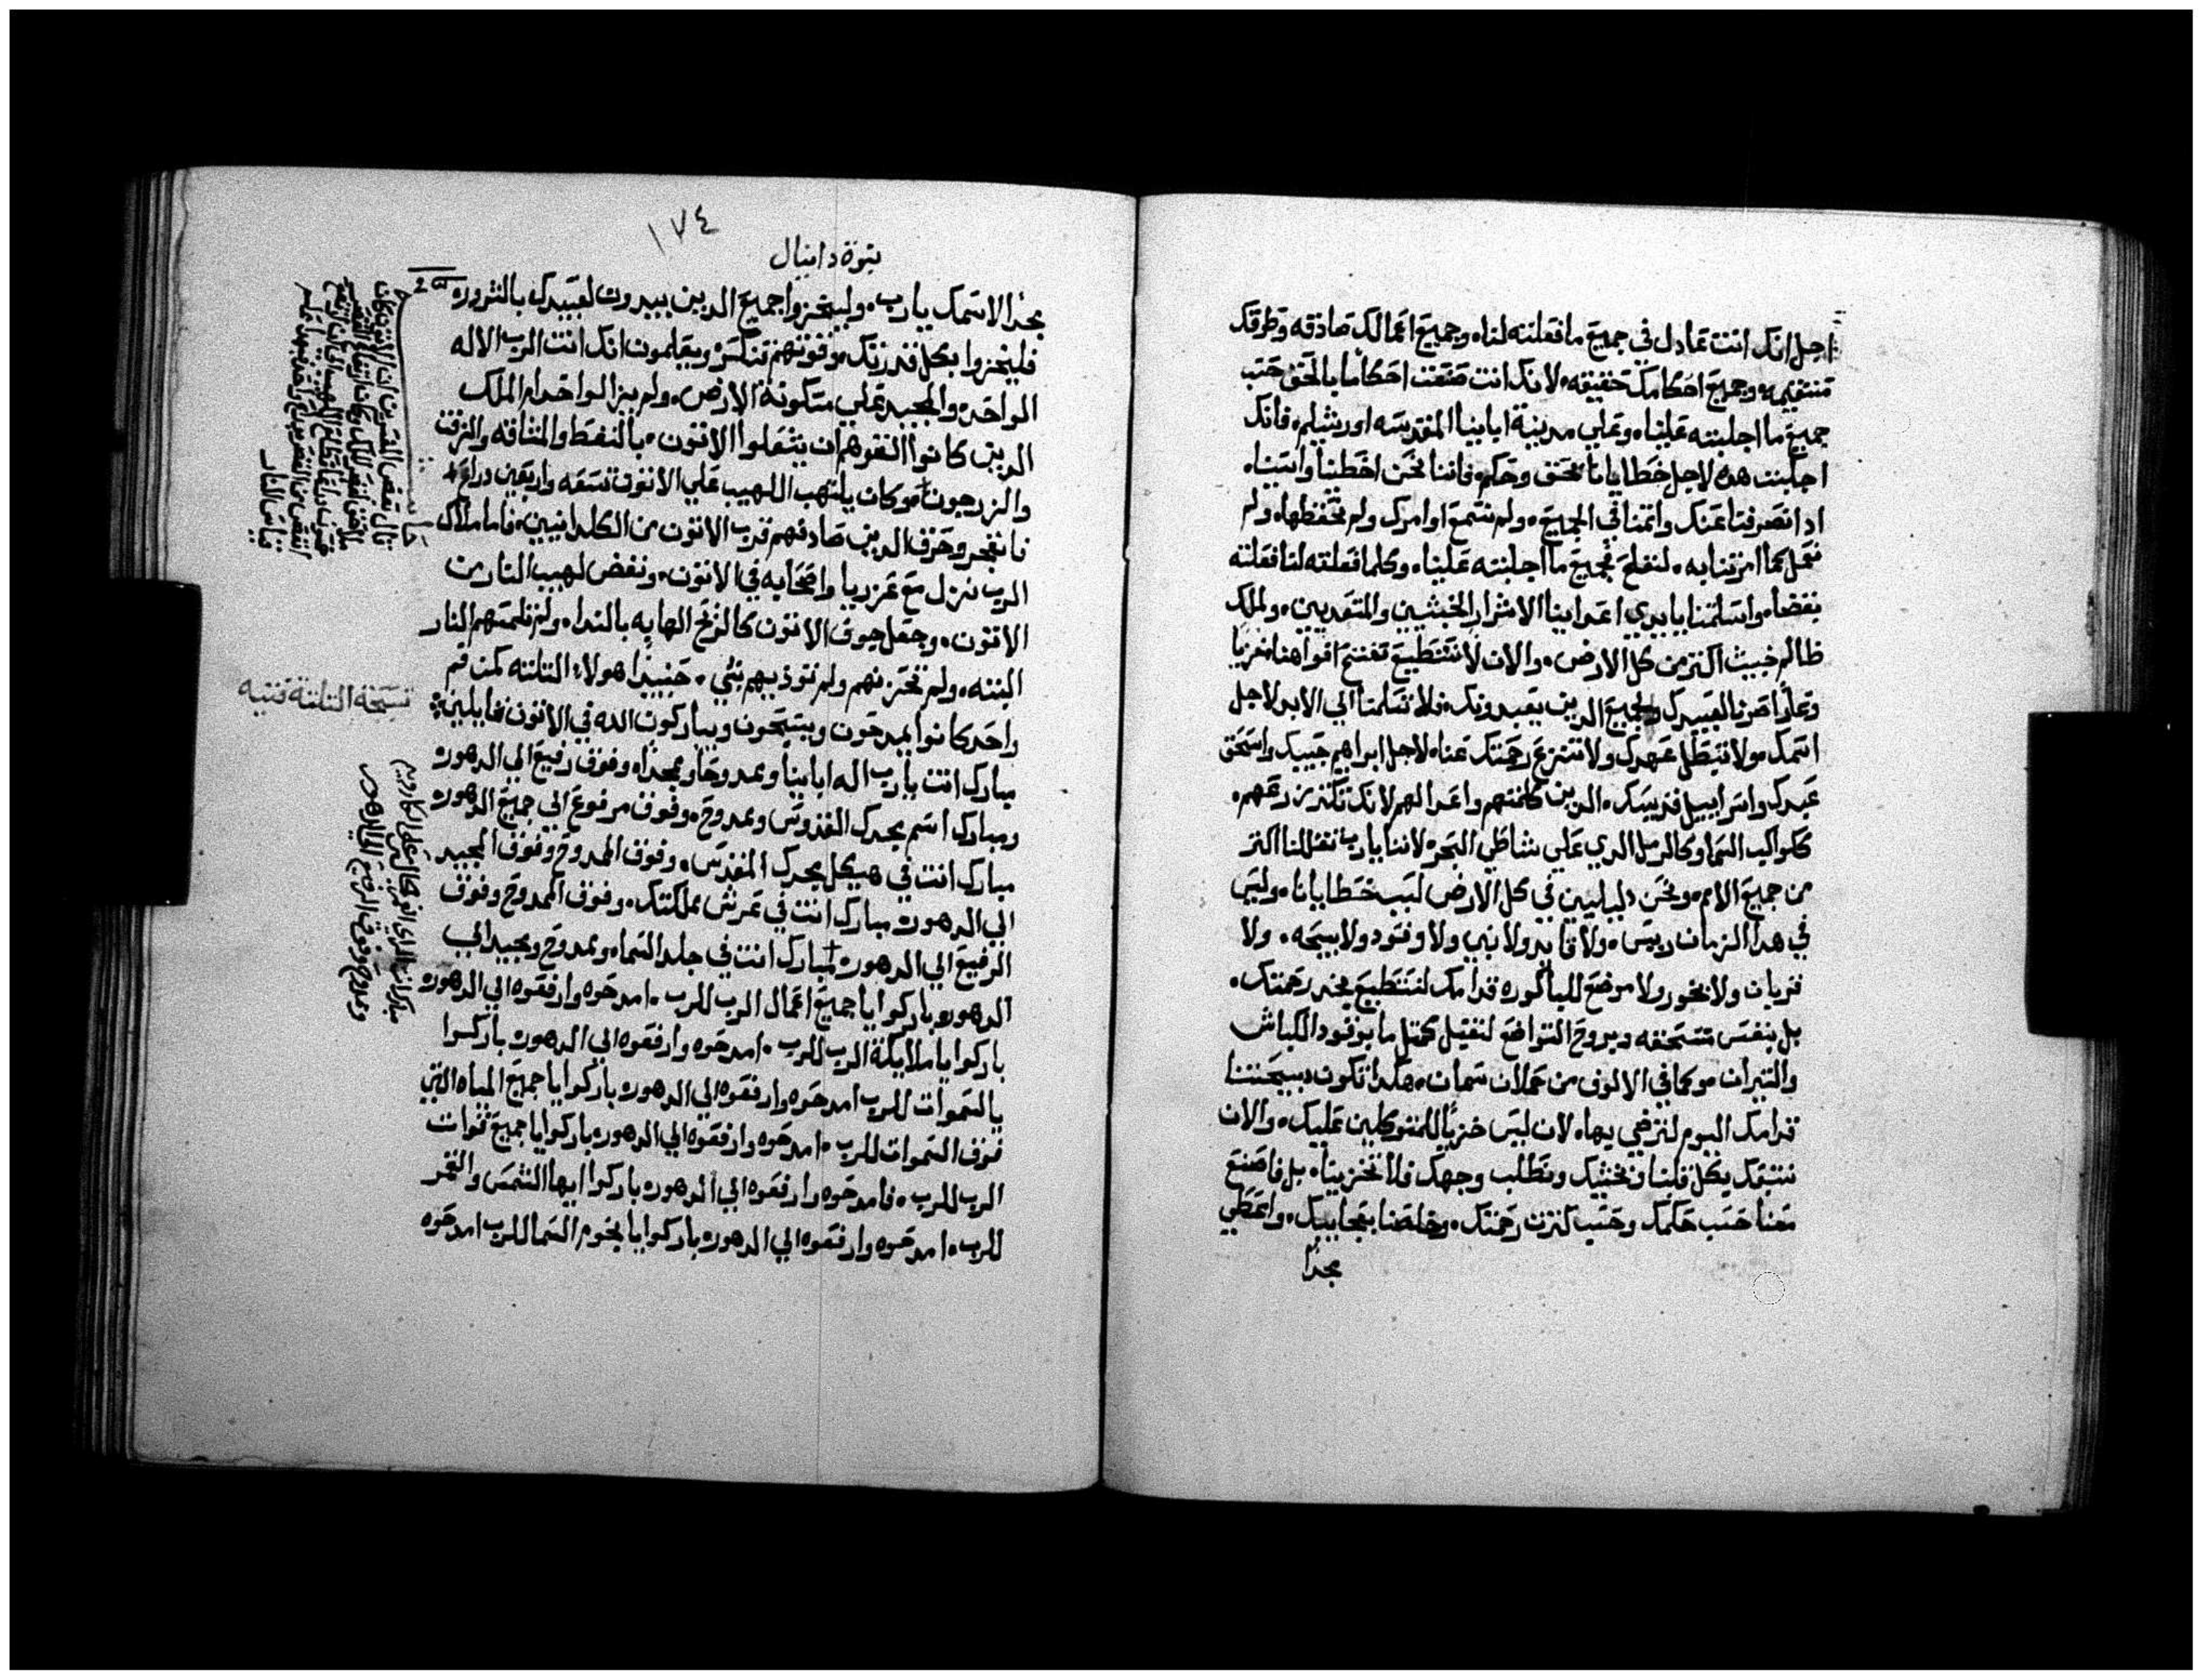 اجل انك انت عادل في جميع ما فعلته لنا، وجميع اعمالك صادقه وطرقك
مستقيمه، وجميع احكامك حقيقه، لانك انت صنعت احكاما بالحق حسب
جميع ما اجلبته علينا، وعلي مدينة ابابينا المقدسه اورشليم، فانك
اجلبت هده لاجل خطايانا بحق وحكم، فاننا نحن اخطينا واسينا،
اد انصرفنا عنك واتمنا في الجميع، ولم نسمع اوامرك ولم نحفظها، ولم
نعمل كما امرتنا به، لنفلح فجميع ما اجلبته علينا، وكلما فعلته لنا فعلته
بقضا، واسلمتنا بايدي اعداينا الاشرار الخبثيين والمتعديين، ولملك
ظالم خبيث اكتر من كل الارض، والان لا نستطيع نفتح افواهنا، خزيا
وعارا صرنا لعبيدك ولجميع الدين يعبدونك، فلا تسلمنا الي الابد لاجل
اسمك، ولا تبطل عهدك ولا تنزع رحمتك عنا، لاجل ابراهيم حبيبك واسحق
عبدك واسراييل قديسك، الدين كلمتهم واعدا لهم لانك تكتر زرعهم،
ككواكب السما وكالرمل الدي علي شاطي البحر، لاننا يارب تقللنا اكتر
من جميع الامم، ونحن دليليين في كل الارض لسبب خطايانا، وليس
في هدا الزمان رييس، ولا قايد ولا نبي ولا وقود ولا دبيحه، ولا
قربان ولا بخور ولا موضع للباكوره قدامك لنستطيع نجد رحمتك،
بل بنفس منسحقه وبروح التواضع لنقبل كمتل ما بوقود الكباش
والتيران، وكما في الالوف من حملان سمان، هكدا تكون دبيحتنا
قدامك اليوم لترضي بها، لان ليس خزيا للمتوكلين عليك، والان
نتبعك بكل قلبنا ونخشيك ونطلب وجهك فلا تخزينا، بل فاصنع
معنا حسب حكمك وحسب كترت رحمتك، وخلصنا بعجايبك، واعطي
مجدا
١٧٤
نبوة دانيال
مجدا لاسمك يارب، وليخزوا جميع الدين يبدوت لعبيدك بالشرور،
فليخزوا بكل قدرتك، وقوتهم تنكسر، ويعلمون انك انت الرب الاله
الواحد، والمجيد علي مسكونة الارض، ولم يزالوا خدام الملك
الدين كانوا القوهم ان يشعلوا الاتون، بالنفط والمشاقه والزفت
والزرجون، وكان يلتهب اللهيب علي الاتون تسعه واربعين دراع،
فانفجر وحرق الدين صادفهم قرب الاتون من الكلدانيين، فاما ملاك
الرب نزل مع عزريا واصحابه في الاتون، ونفض لهيب النار من
الاتون، وجعل جوف الاتون كالريح الهابه بالندا، ولم تلمسهم النار
البته، ولم تحزنهم ولم تودييهم بشي، حينيدا هولاء التلته كمن فم
واحد كانوا يمدحون ويسبحون ويباركون الله في الاتون قايلين:
نسبحة التلتة فتيه
مبارك انت يارب اله ابابينا وممدوحا وممجدا، وفوق رفيع الي الدهور،
ومبارك اسم مجدك القدوس وممدوح، وفوق مرفوع الي جميع الدهور،
مبارك انت في هيكل مجدك المقدس، وفوق الممدوح وفوق المجيد
الي الدهور، مبارك انت في عرش مملكتك، وفوق الممدوح وفوق
الرفيع الي الدهور، مبارك انت في جلد السما، وممدوح ومجيد الي
الدهور، باركوا يا جميع اعمال الرب للرب، امدحوه وارفعوه الي الدهور،
باركوا يا ملايكة الرب للرب، امدحوه وارفعوه الي الدهور، باركوا
يا السموات للرب امدحوه وارفعوه الي الدهور، باركوا يا جميع المياه التي
فوق السموات للرب، امدحوه وارفعوه الي الدهور، باركوا يا جميع قوات
الرب للرب، فامدحوه وارفعوه الي الدهور، باركوا ايها الشمس والقمر
للرب، امدحوه وارفعوه الي الدهور، باركوا يا نجوم السما للرب امدحوه
مبارك انت الدي الناظر الجالس علي الكاروبيم
وممدوح وفوق الرفيع الي الدهور